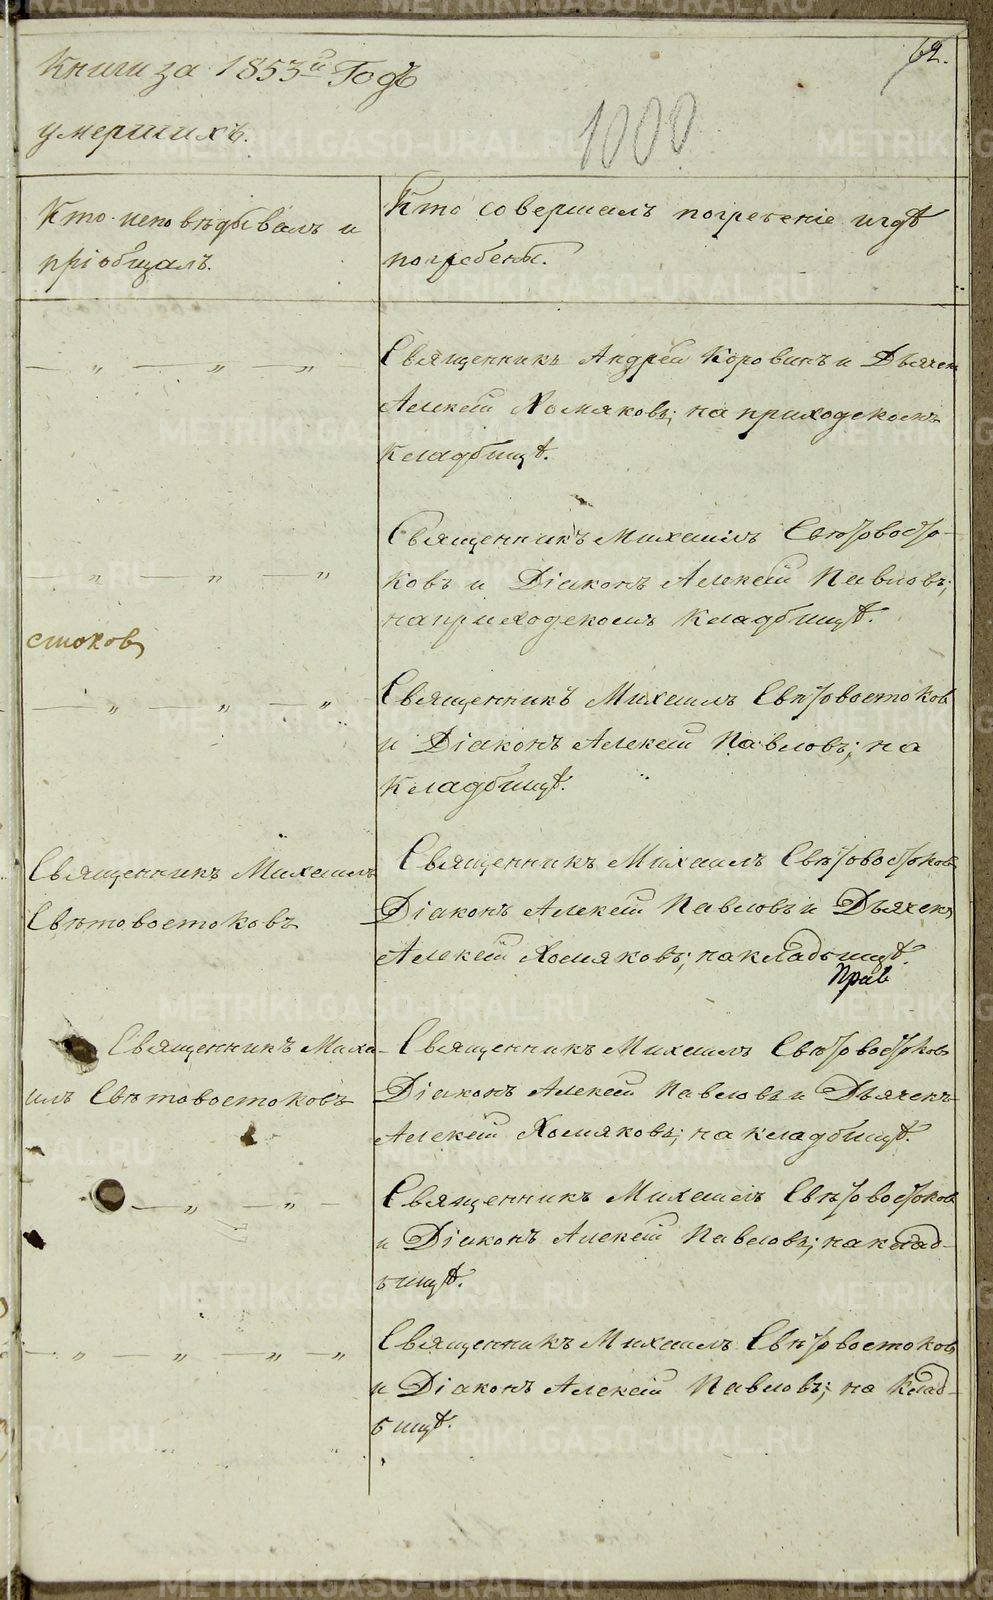 62.
Книги за 1853й Годъ
умершихъ.
1000
Кто исповѣдывалъ и
пріобщалъ.
Кто совершалъ погребеніе и гдѣ
погребены.
— „ — „ — „
Священникъ Андрей Коровинъ и Дьячек
Алексѣй Хомяковъ; на приходскомъ
кладбищѣ.
— „ — „ — „
Священникъ Михаилъ Свѣтовосто-
ковъ и Діаконъ Алексѣй Павловъ;
на приходскомъ кладбищѣ.
стоков
— „ „ — „
Священникъ Михаилъ Свѣтовостоков
и Діаконъ Алексѣй Павловъ; на
кладбищѣ.
Священникъ Михаилъ
Свѣтовостоковъ
Священникъ Михаилъ Свѣтовостоков
Діаконъ Алексѣй Павловъ и Дьячек
Алексѣй Хомяковъ; на кладбищѣ.
Прав
Священникъ Миха-
илъ Свѣтовостоковъ
Священникъ Михаилъ Свѣтовостоков
Діаконъ Алексѣй Павловъ и Дьячекъ
Алексѣй Хомяковъ; на кладбищѣ.
— „ — „ —
Священникъ Михаилъ Свѣтовостоков
и Діаконъ Алексѣй Павловъ; на клад-
бищѣ.
— „ „ — „ — „
Священникъ Михаилъ Свѣтовостоков
и Діаконъ Алексѣй Павловъ; на клад-
бищѣ.
METRIKI.GASO-URAL.RU